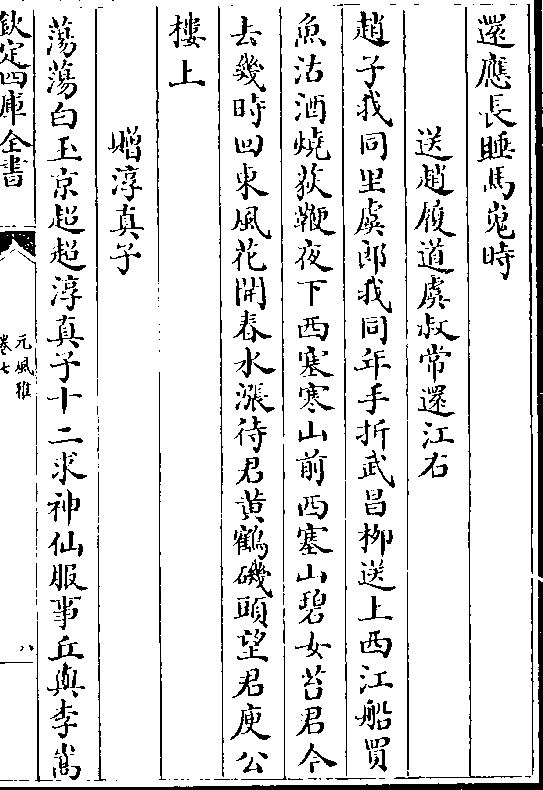 還應長睡馬嵬時
送趙履道虞叔常還江右
趙子我同里虞郎我同年手折武昌栁送上西江船買
魚沽酒燒荻鞭夜下西塞寒山前西塞山碧女苔君今
去幾時回東風花開春水漲待君黄鶴磯頭望君庾公
樓上
贈淳真子
蕩蕩白玉京超超淳真子十二求神仙服事丘與李嵩
欽定四庫全書
元風雅
卷七
八